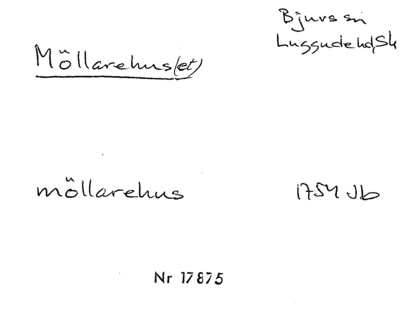 Bjuvs sn
Möllarehus(et)
Luggude hd, Sk
möllarehus
1754 Jb
Nr 17875